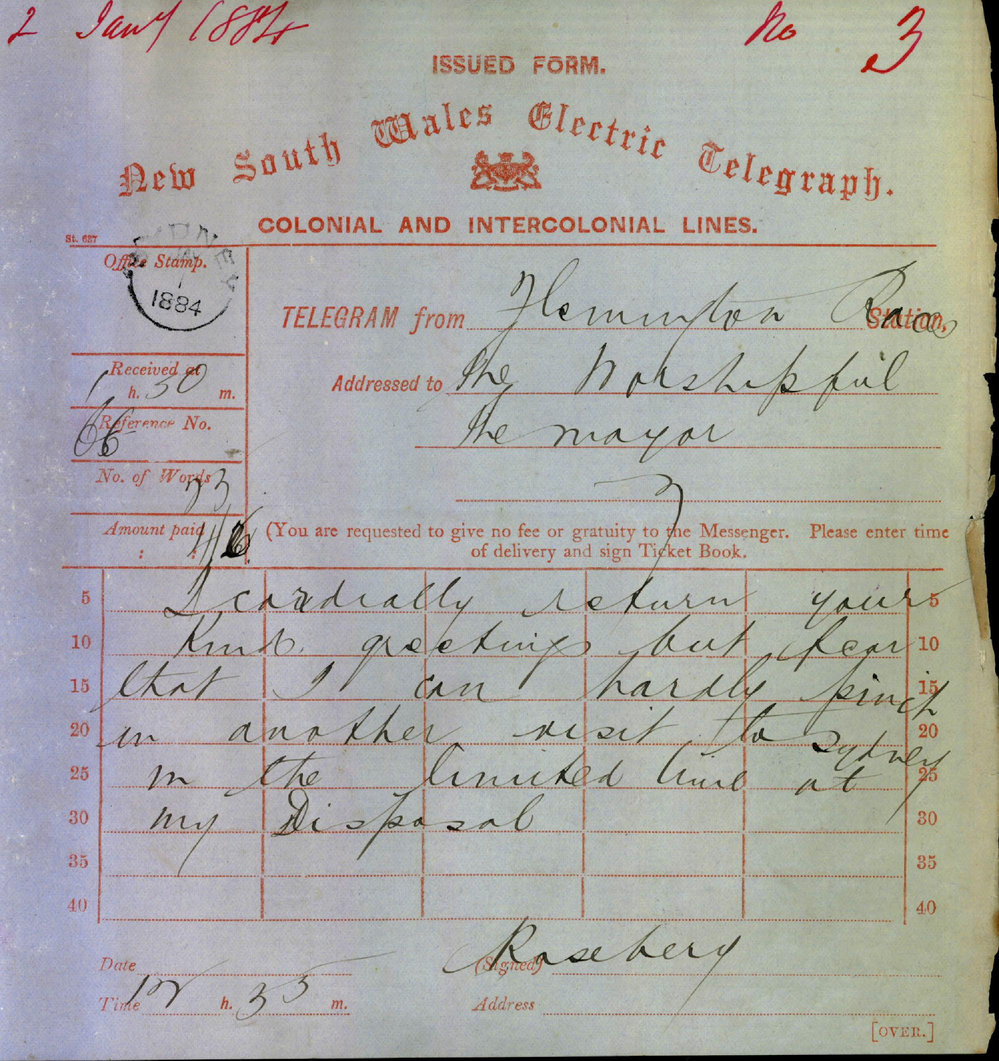 2 Jany 1884 No 3
ISSUED FORM.
New South Wales Electric Telegraph.
COLONIAL AND INTERCOLONIAL LINES.
St. 627
Office Stamp.
SYDNEY
1
1884
TELEGRAM from Flemington Races Station,
Received at
1 h. 30 m.
Addressed to The Worshipful
Reference No.
66
The mayor
No. of Words
Amount paid
: :
(You are requested to give no fee or gratuity to the Messenger. Please enter time
of delivery and sign Ticket Book.
5 I cordially return your 5
10 Kind greetings but fear 10
15 that I can hardly pinch 15
20 in another visit to Sydney 20
25 in the limited time at 25
30 my Disposal 30
35 35
40 40
Date
(Signed) Rosebery
Time 12 h. 35 m.
Address
[OVER.]